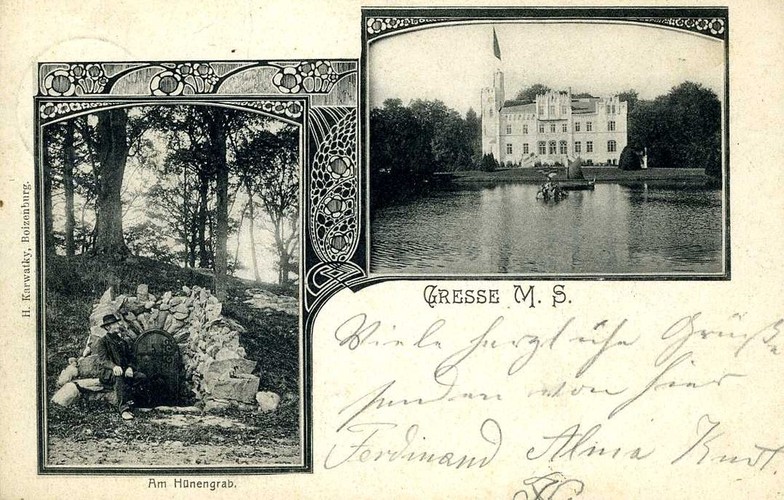 GRESSE M. S.
Viele herzliche Grüße
senden von hier
Ferdinand Alma Kurt.
Am Hünengrab.
H. Karwatky, Boizenburg.